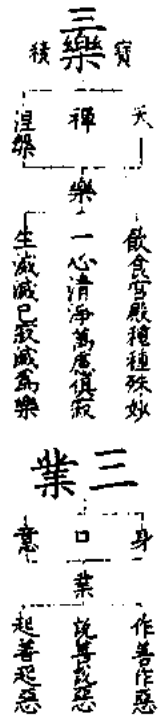 三樂
寶積
天
禪
涅槃
樂
飲食宮殿種種殊妙
一心清淨萬慮俱寂
生滅滅已寂滅為樂
三業
身
口
意
業
作善作惡
說善說惡
起善起惡